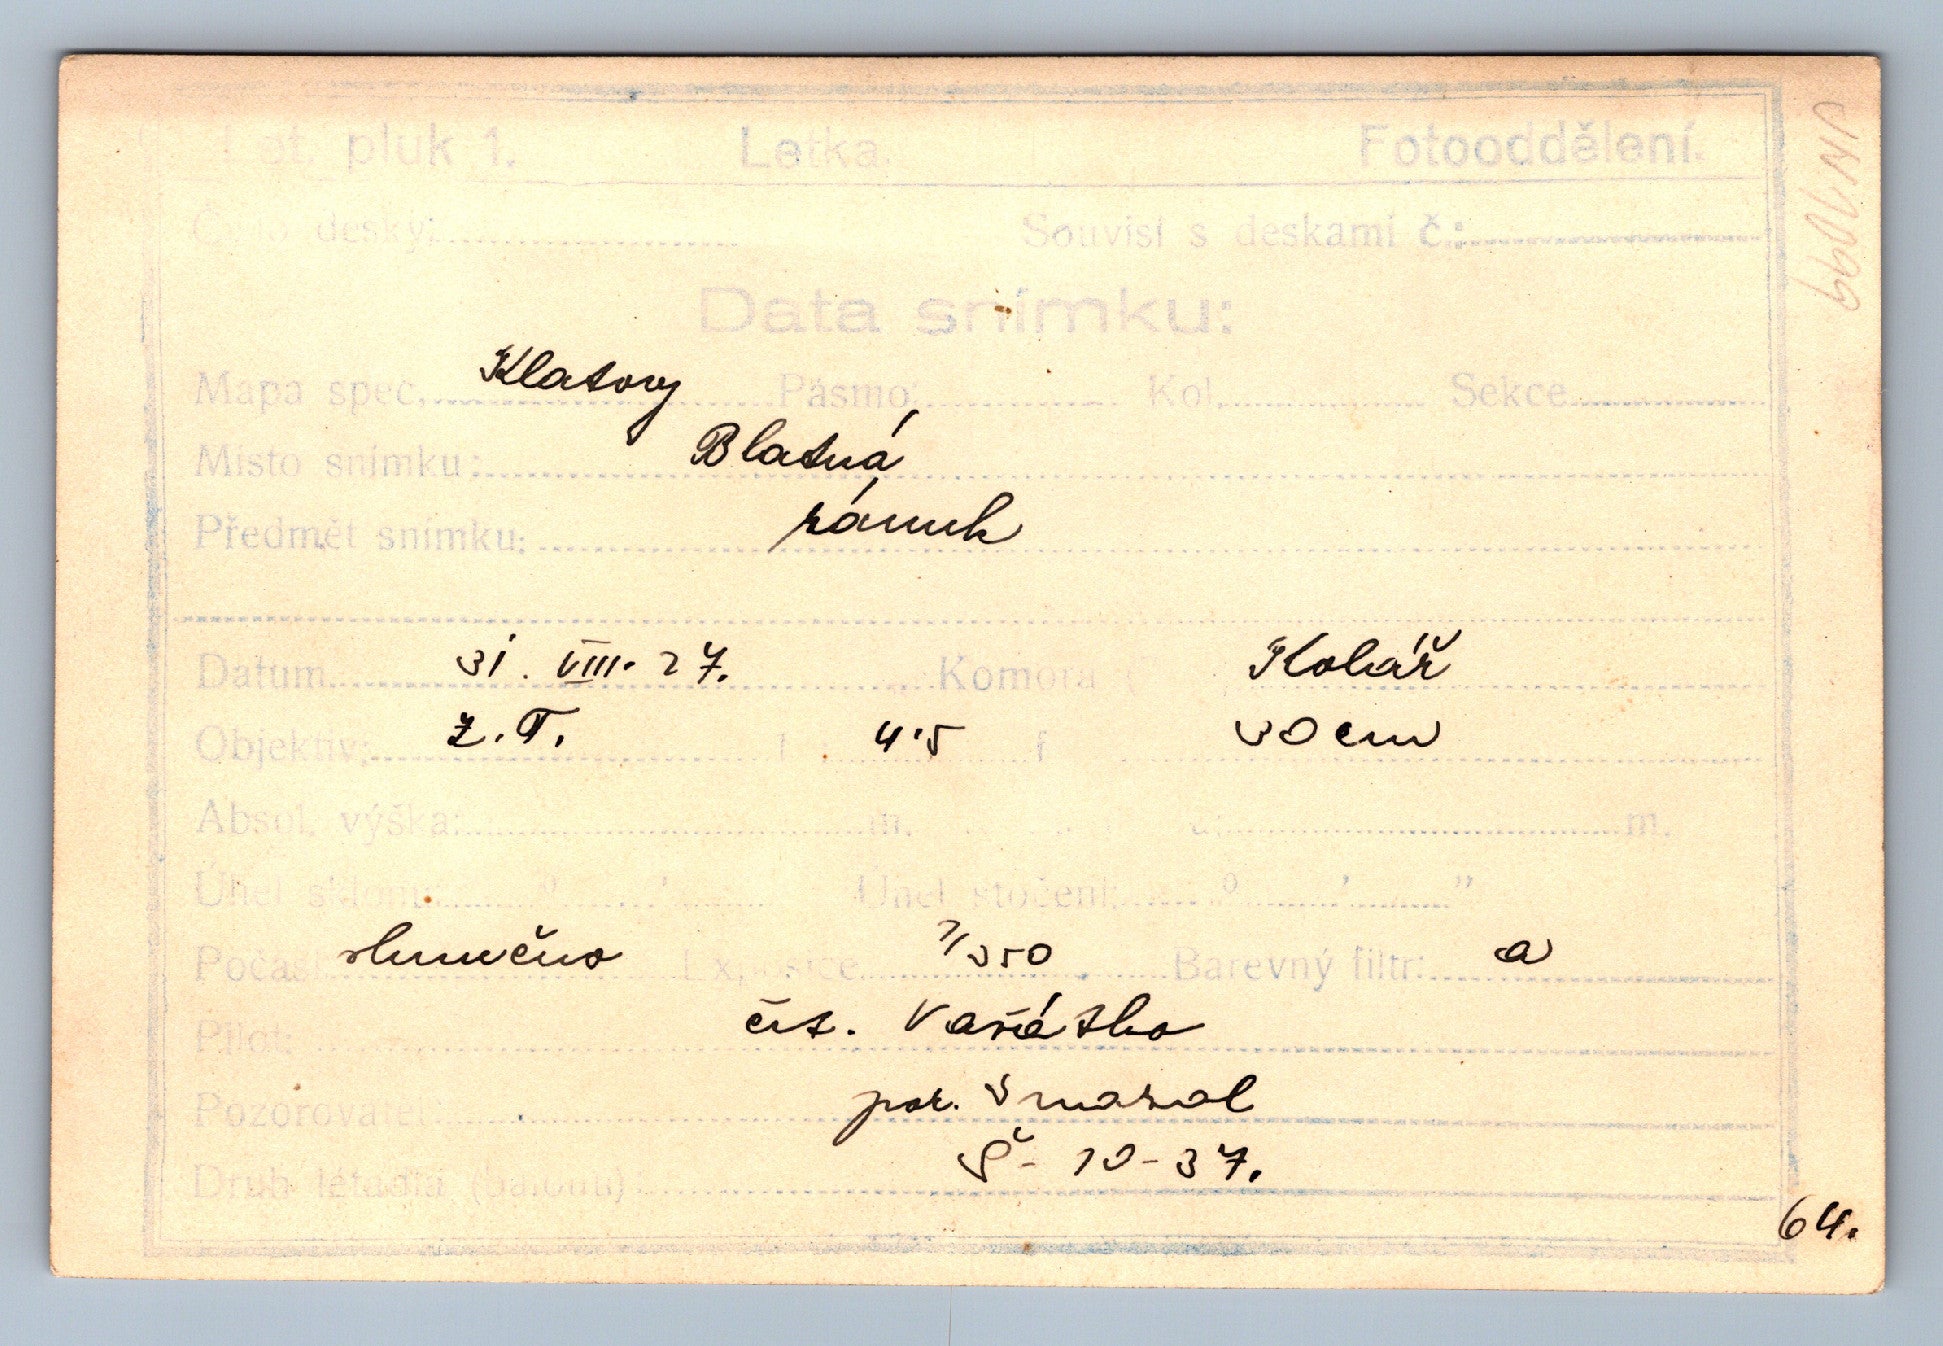 Let. pluk 1. Letka. Fotooddělení.
Číslo desky: Souvisí s deskami č.:
Data snímku:
Mapa spec. Klatovy Pásmo: Kol. Sekce
Místo snímku: Blatná
Předmět snímku: zámek
Datum 31. VIII. 27. Komora Kolář
Objektiv: Z.T. 4·5 f 30 cm
Absol. výška: m. m.
Úhel sklonu: ° ' Úhel stočení: ° ' "
Počasí slunečno Exposice 1/350 Barevný filtr: a
Pilot: čet. Vařátko
Pozorovatel: por. Šmatal
Druh létadla (balonu) Š - 10 - 37.
64.